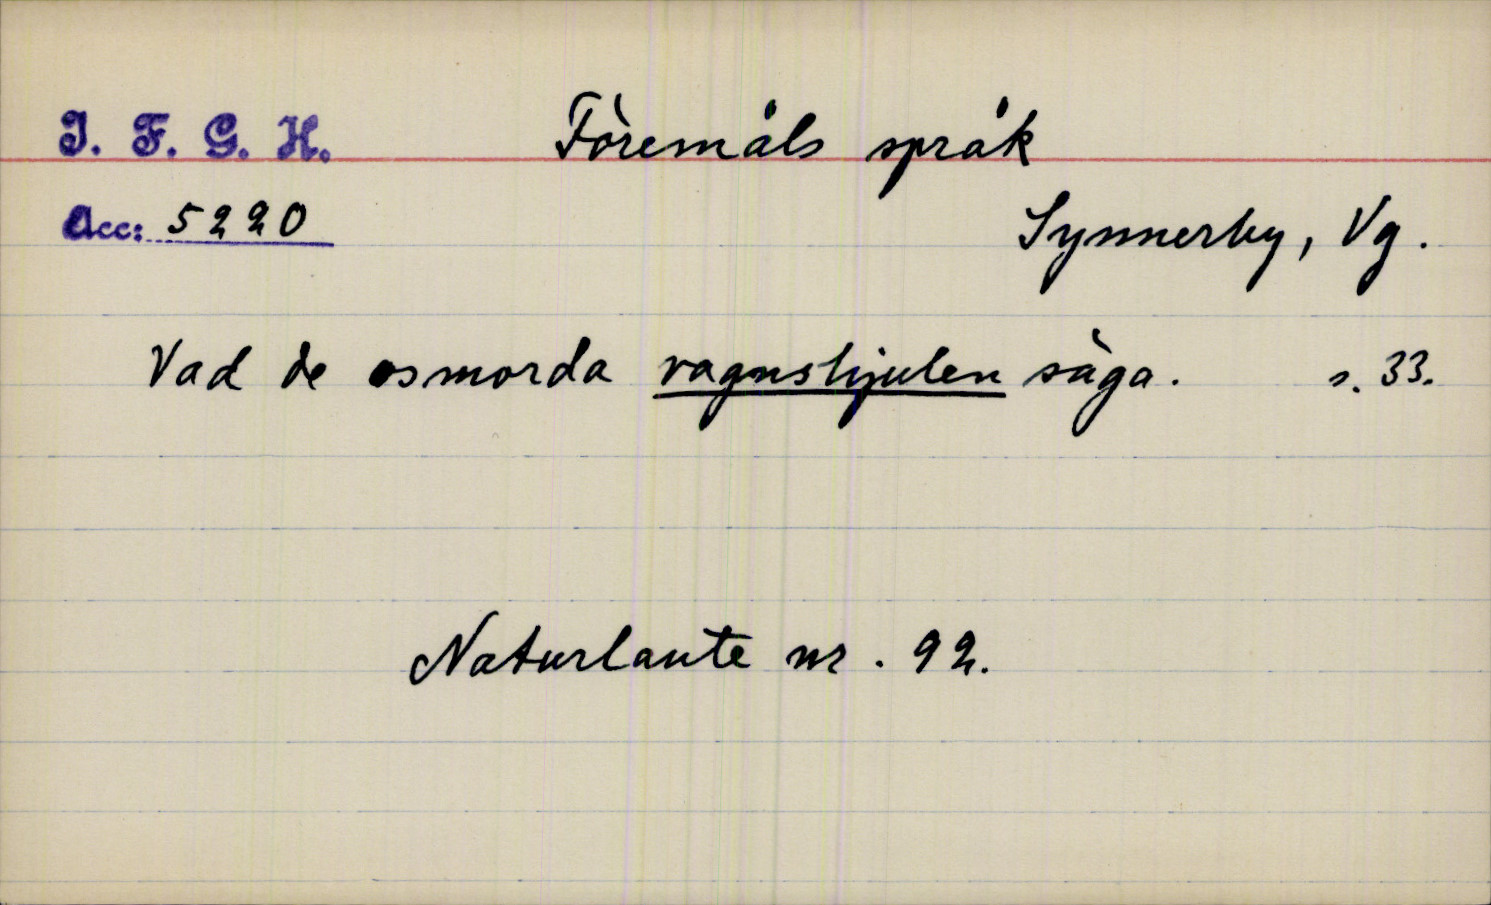 I. F. G. H. Föremåls språk
Acc: 5220 Synnerby, Vg.
Vad de osmorda vagnshjulen säga. s. 33.
Naturlaute nr. 92.